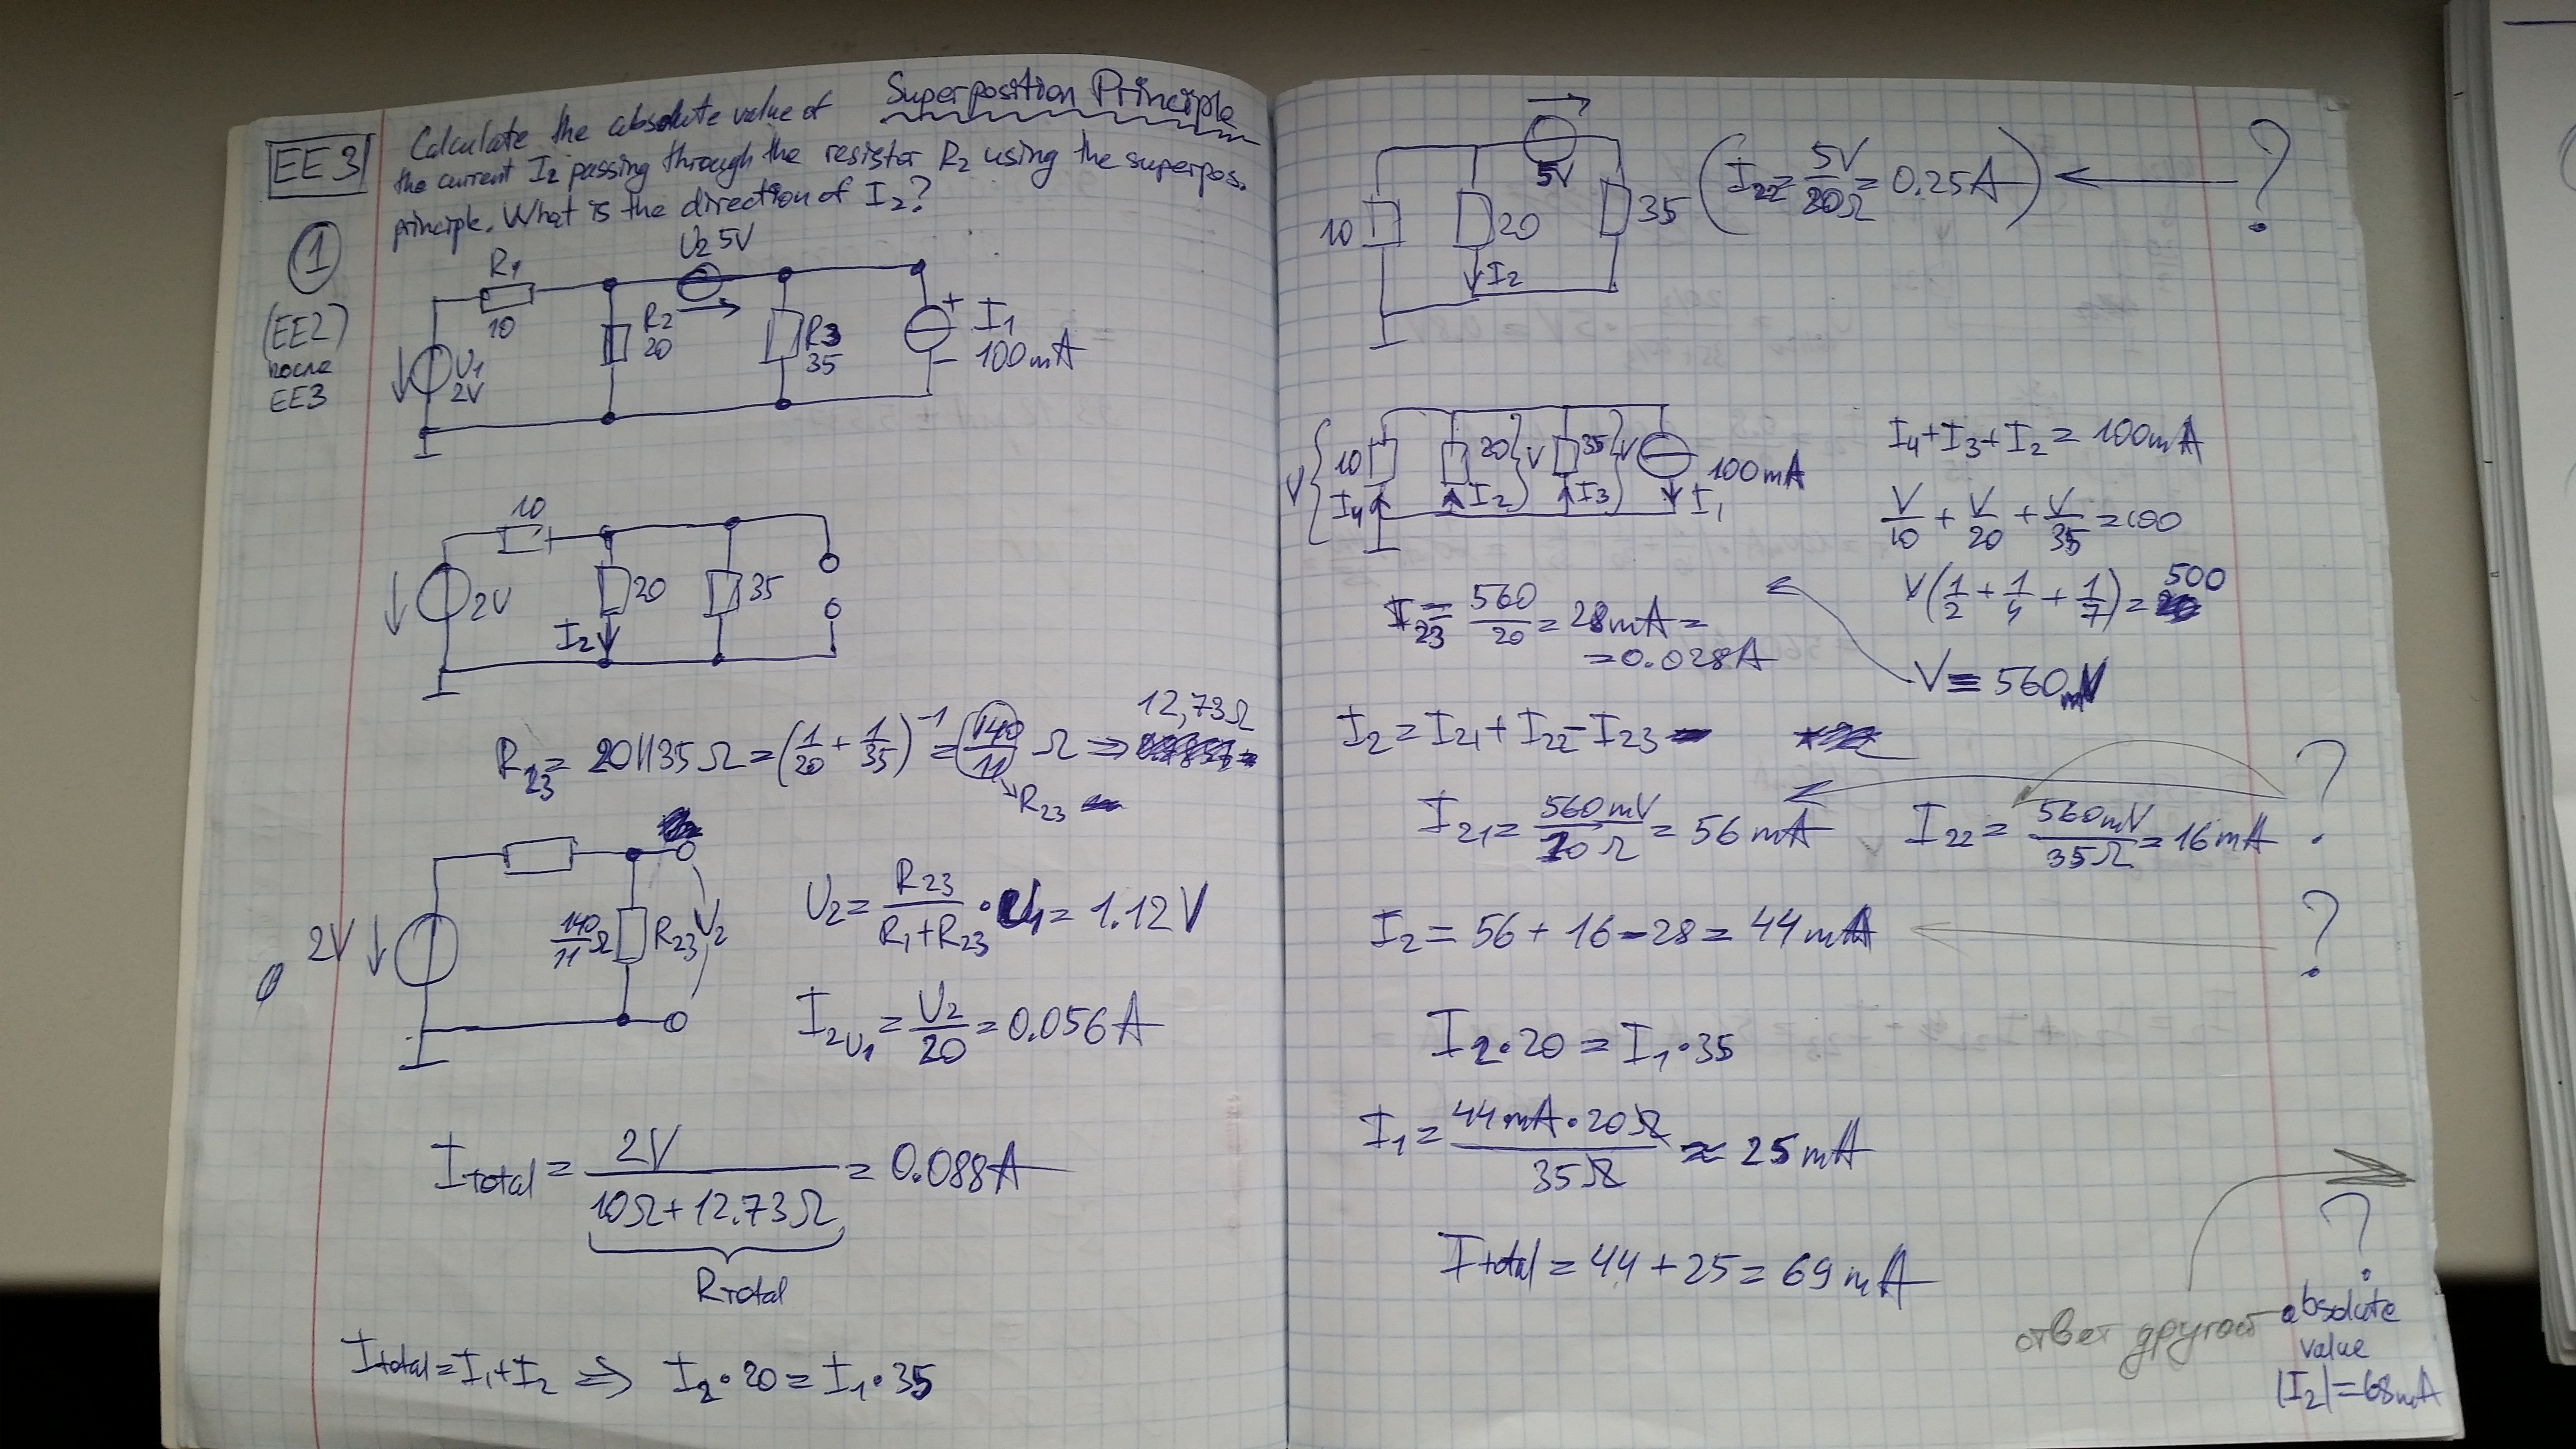 Superposition Principle
EE3
Calculate the absolute value of
the current I₂ passing through the resistor R₂ using the superpos.
principle. What is the direction of I₂?
1
(EE2)
после
EE3
R₁
10
U₂ 5V
R₂
20
R3
35
+
-
I₁
100mA
U₁
2V
10
2V
20
I₂
35
R₂₃ = 20||35 Ω = (1/20 + 1/35)⁻¹ = (140/11) Ω ⇒ 12,73Ω
R₂₃
2V
140/11 Ω
R₂₃
U₂
U₂ = R₂₃/(R₁+R₂₃) · U₁ = 1.12V
I₂U₁ = U₂/20 = 0.056A
Itotal = 2V/(10Ω+12.73Ω) = 0.088A
Rtotal
Itotal = I₁+I₂ ⇒ I₂·20 = I₁·35
5V
10
20
35
I₂
(I₂₂ = 5V/20Ω = 0.25A)
?
V
10
I₄
20
V
I₂
35
V
I₃
100mA
I₁
I₄+I₃+I₂ = 100mA
V/10 + V/20 + V/35 = 100
V(1/2 + 1/4 + 1/7) = 500
V = 560mV
I₂₃ = 560/20 = 28mA =
= 0.028A
I₂ = I₂₁ + I₂₂ - I₂₃
?
I₂₁ = 560mV/10Ω = 56mA
I₂₂ = 560mV/35Ω = 16mA
I₂ = 56 + 16 - 28 = 44mA
?
I₂·20 = I₁·35
I₁ = 44mA·20Ω/35Ω ≈ 25mA
Itotal = 44 + 25 = 69mA
?
ответ другой
absolute
value
|I₂| = 68mA